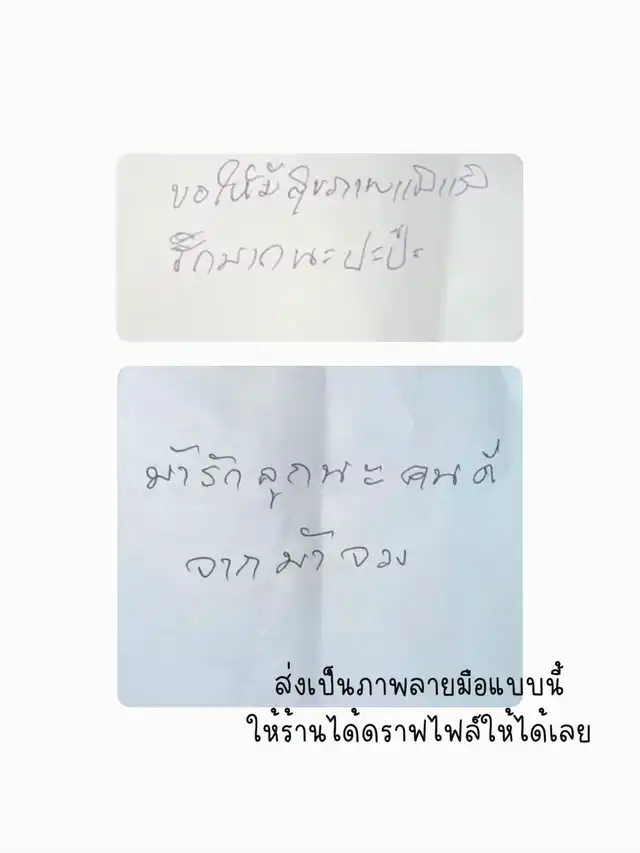 ขอให้มีสุขภาพแข็งแรง
รักมากนะปะป๊ะ
ม้ารักลูกนะคนดี
จากม้าจวง
ส่งเป็นภาพลายมือแบบนี้
ให้ร้านได้ดราฟไฟล์ให้ได้เลย